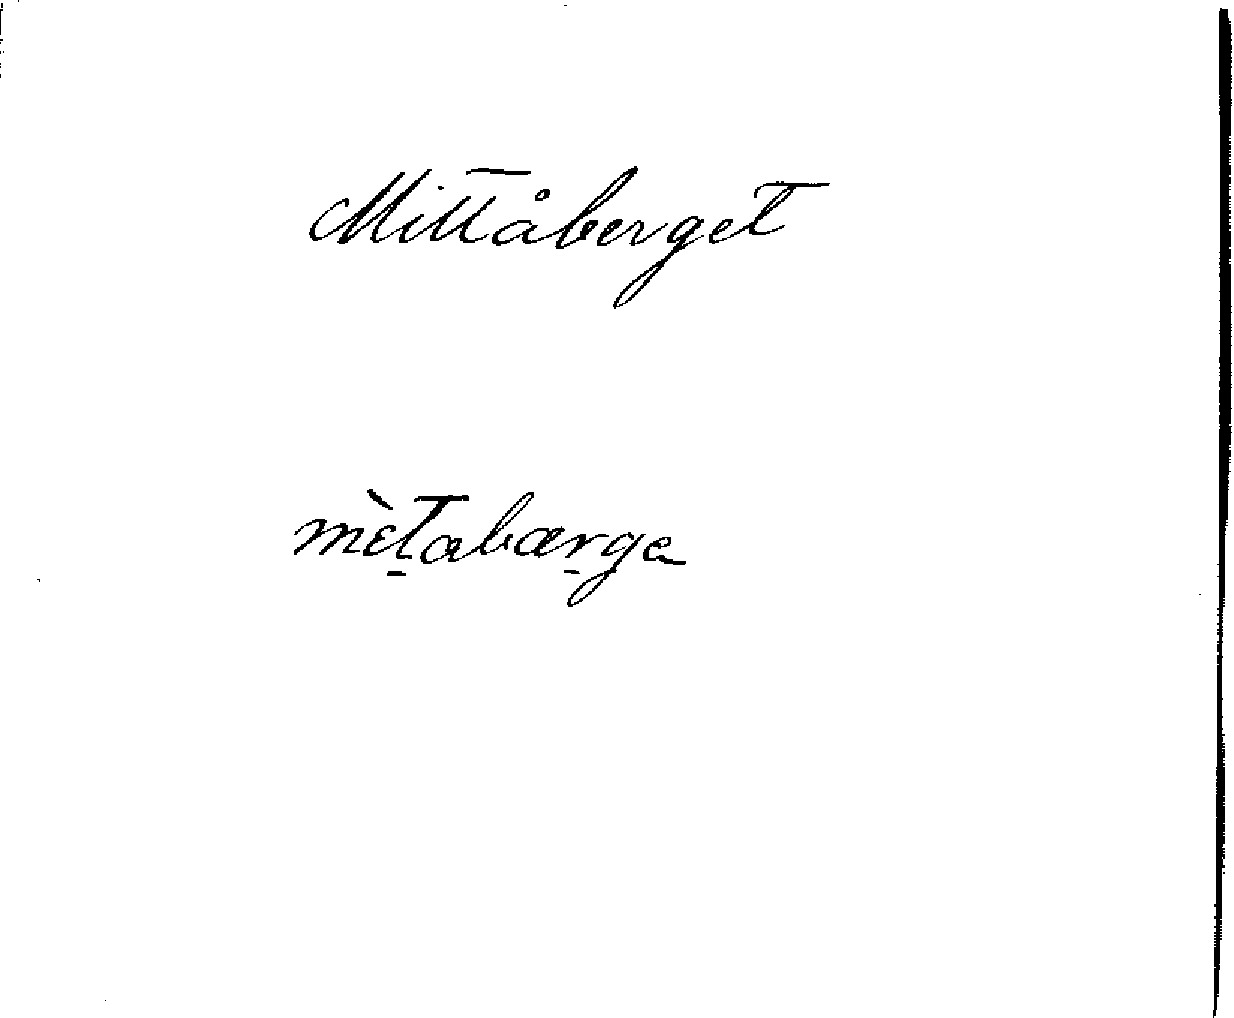 Mittåberget
mèt̠abær̠ga